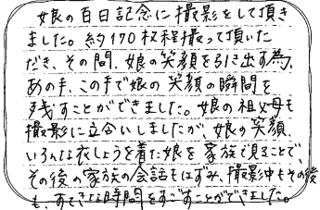 娘の百日記念に撮影をして頂き
ました。約170枚程撮って頂いた
だき、その間、娘の笑顔を引き出す為、
あの手、この手で娘の笑顔の瞬間を
残すことができました。娘の祖父母も
撮影に立合いしましたが、娘の笑顔、
いろんな衣しょうを着た娘を家族で見ることで、
その後の家族の会話もはずみ、撮影中もその後
も、すてきな時間をすごすことができました。